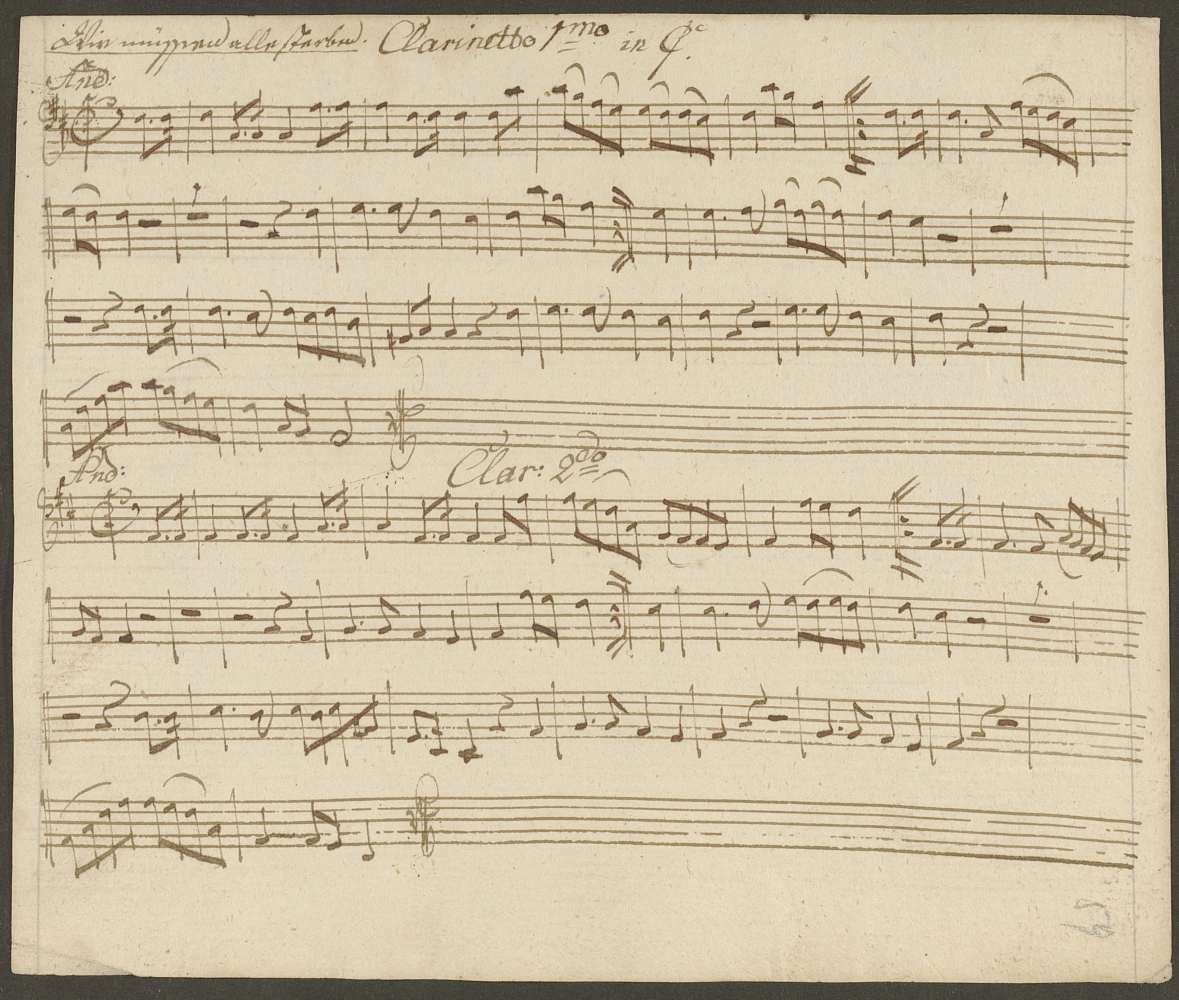 Wir müssen alle sterben. Clarinetto 1mo in C.
And:
And: Clar: 2do